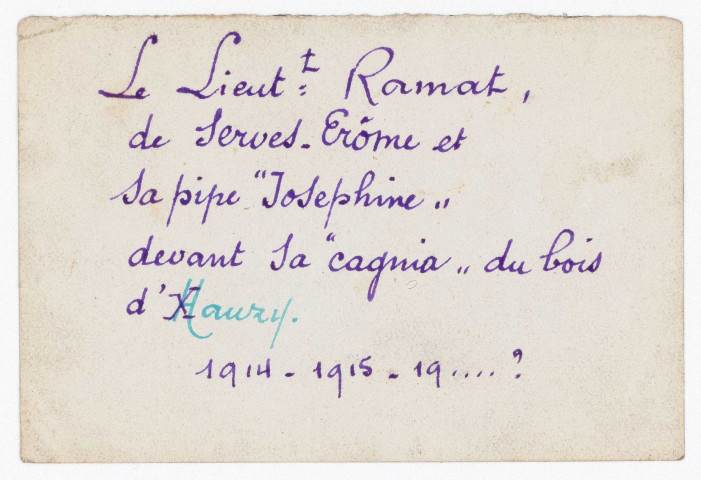 Le Lieut.t Ramat,
de Serves-Erôme et
sa pipe "Josephine"
devant sa "cagnia" du bois
d'Hauzy.
1914 - 1915 - 19....?